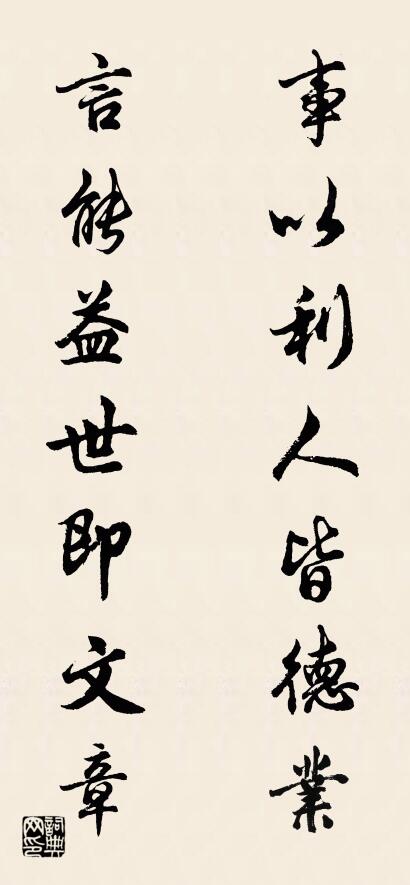 事以利人皆德業
言能益世即文章
詞典网印